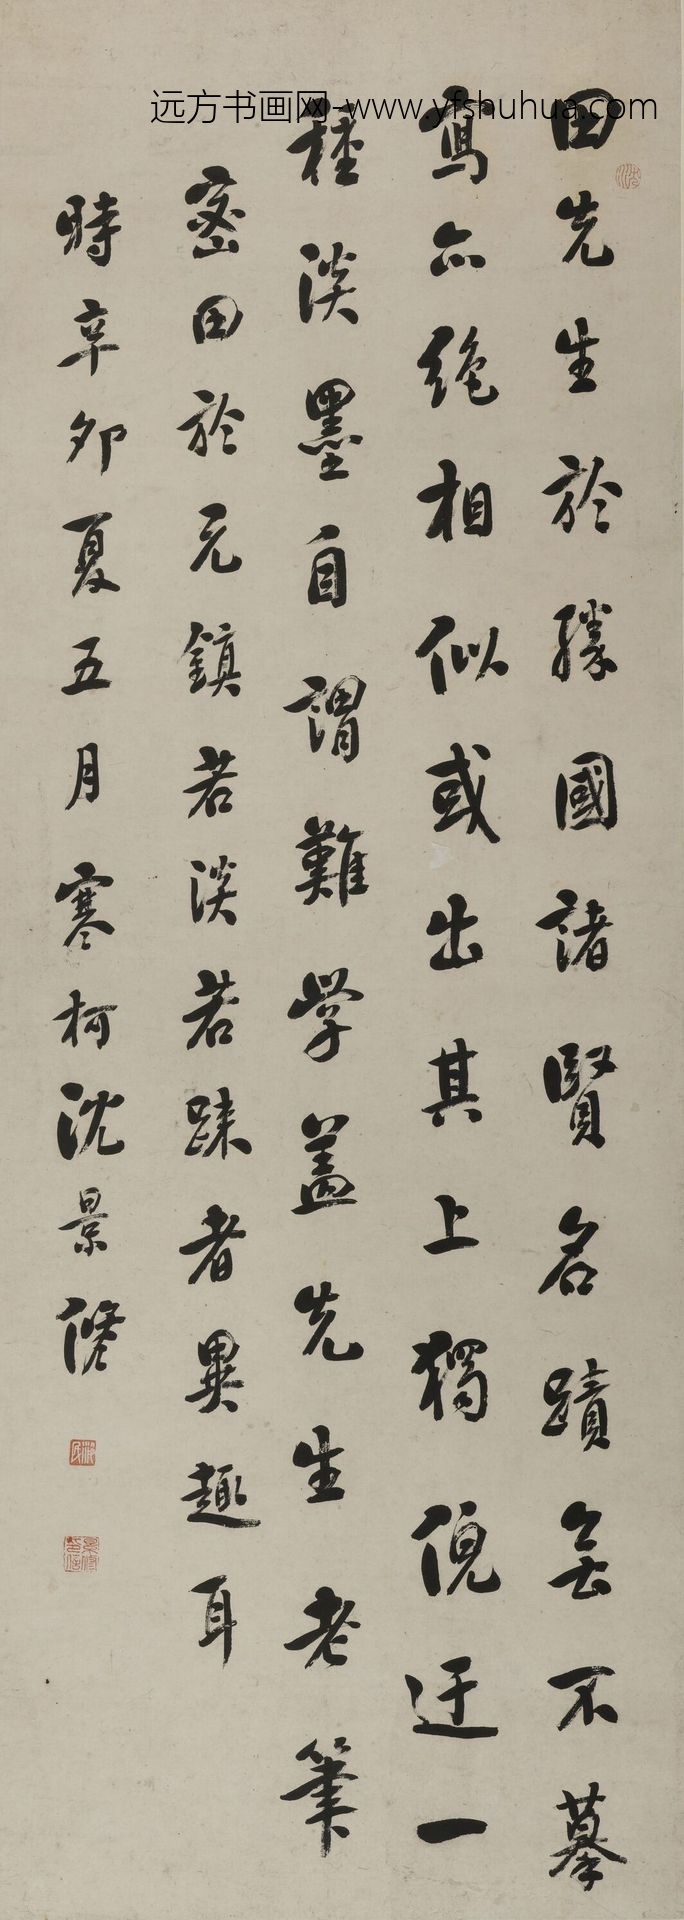 远方书画网-www.yfshuhua.com
田先生於勝國諸賢名蹟無不摹
寫亦絕相似或出其上獨倪迂一
種淡墨自謂難學蓋先生老筆
密田於元鎮若淡若踈者異趣耳
時辛卯夏五月寒柯沈景修